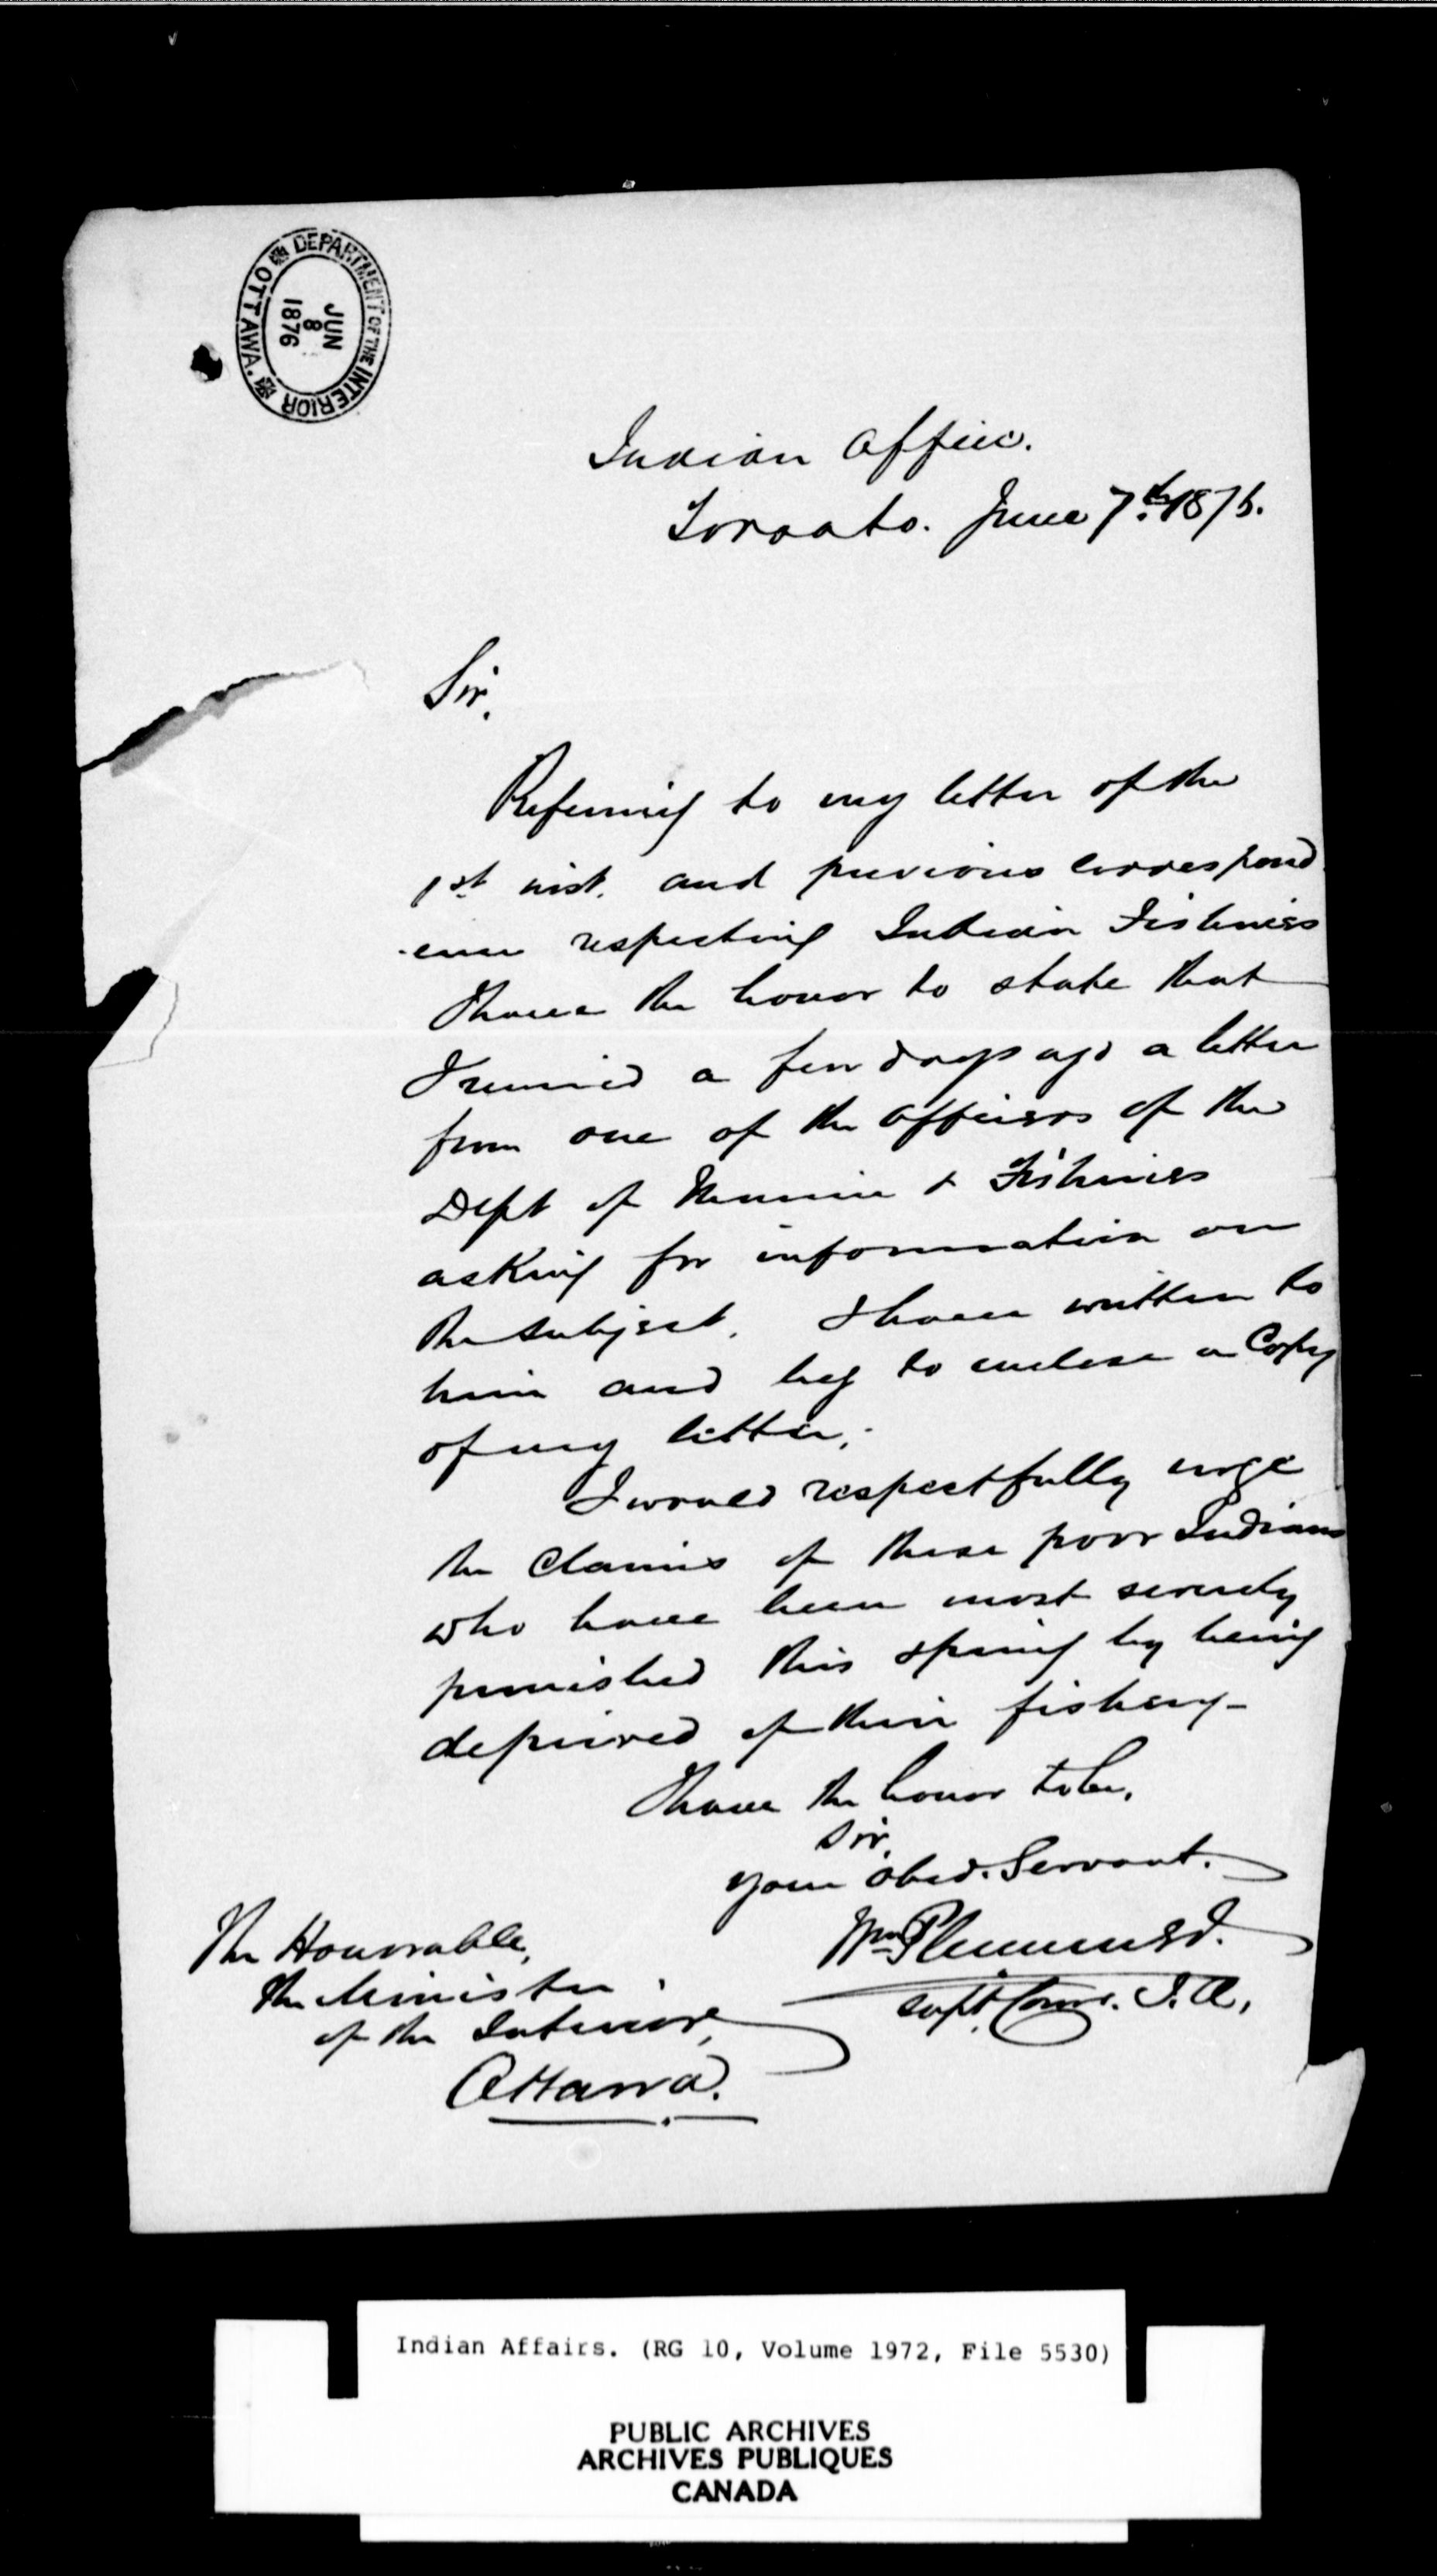 DEPARTMENT OF THE INTERIOR
JUN
8
1876
OTTAWA.
Indian Office.
Toronto. June 7th. 1876.
Sir,
Referring to my letter of the
1st inst. and previous correspond
-ence respecting Indian Fisheries
I have the honor to state that
I received a few days ago a letter
from one of the officers of the
Dept of Marine & Fisheries
asking for information on
the subject. I have written to
him and beg to enclose a Copy
of my letter.-
I would respectfully urge
the Claims of these poor Indians
who have been most severely
punished this spring by being
deprived of their fishery-
I have the honor to be,
Sir,
Your obed. Servant.
Wm Plummer
Supt. Comr. I.A.
The Honorable,
the Minister
of the Interior,
Ottawa.
Indian Affairs. (RG 10, Volume 1972, File 5530)
PUBLIC ARCHIVES
ARCHIVES PUBLIQUES
CANADA